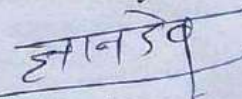 ज्ञानदेव